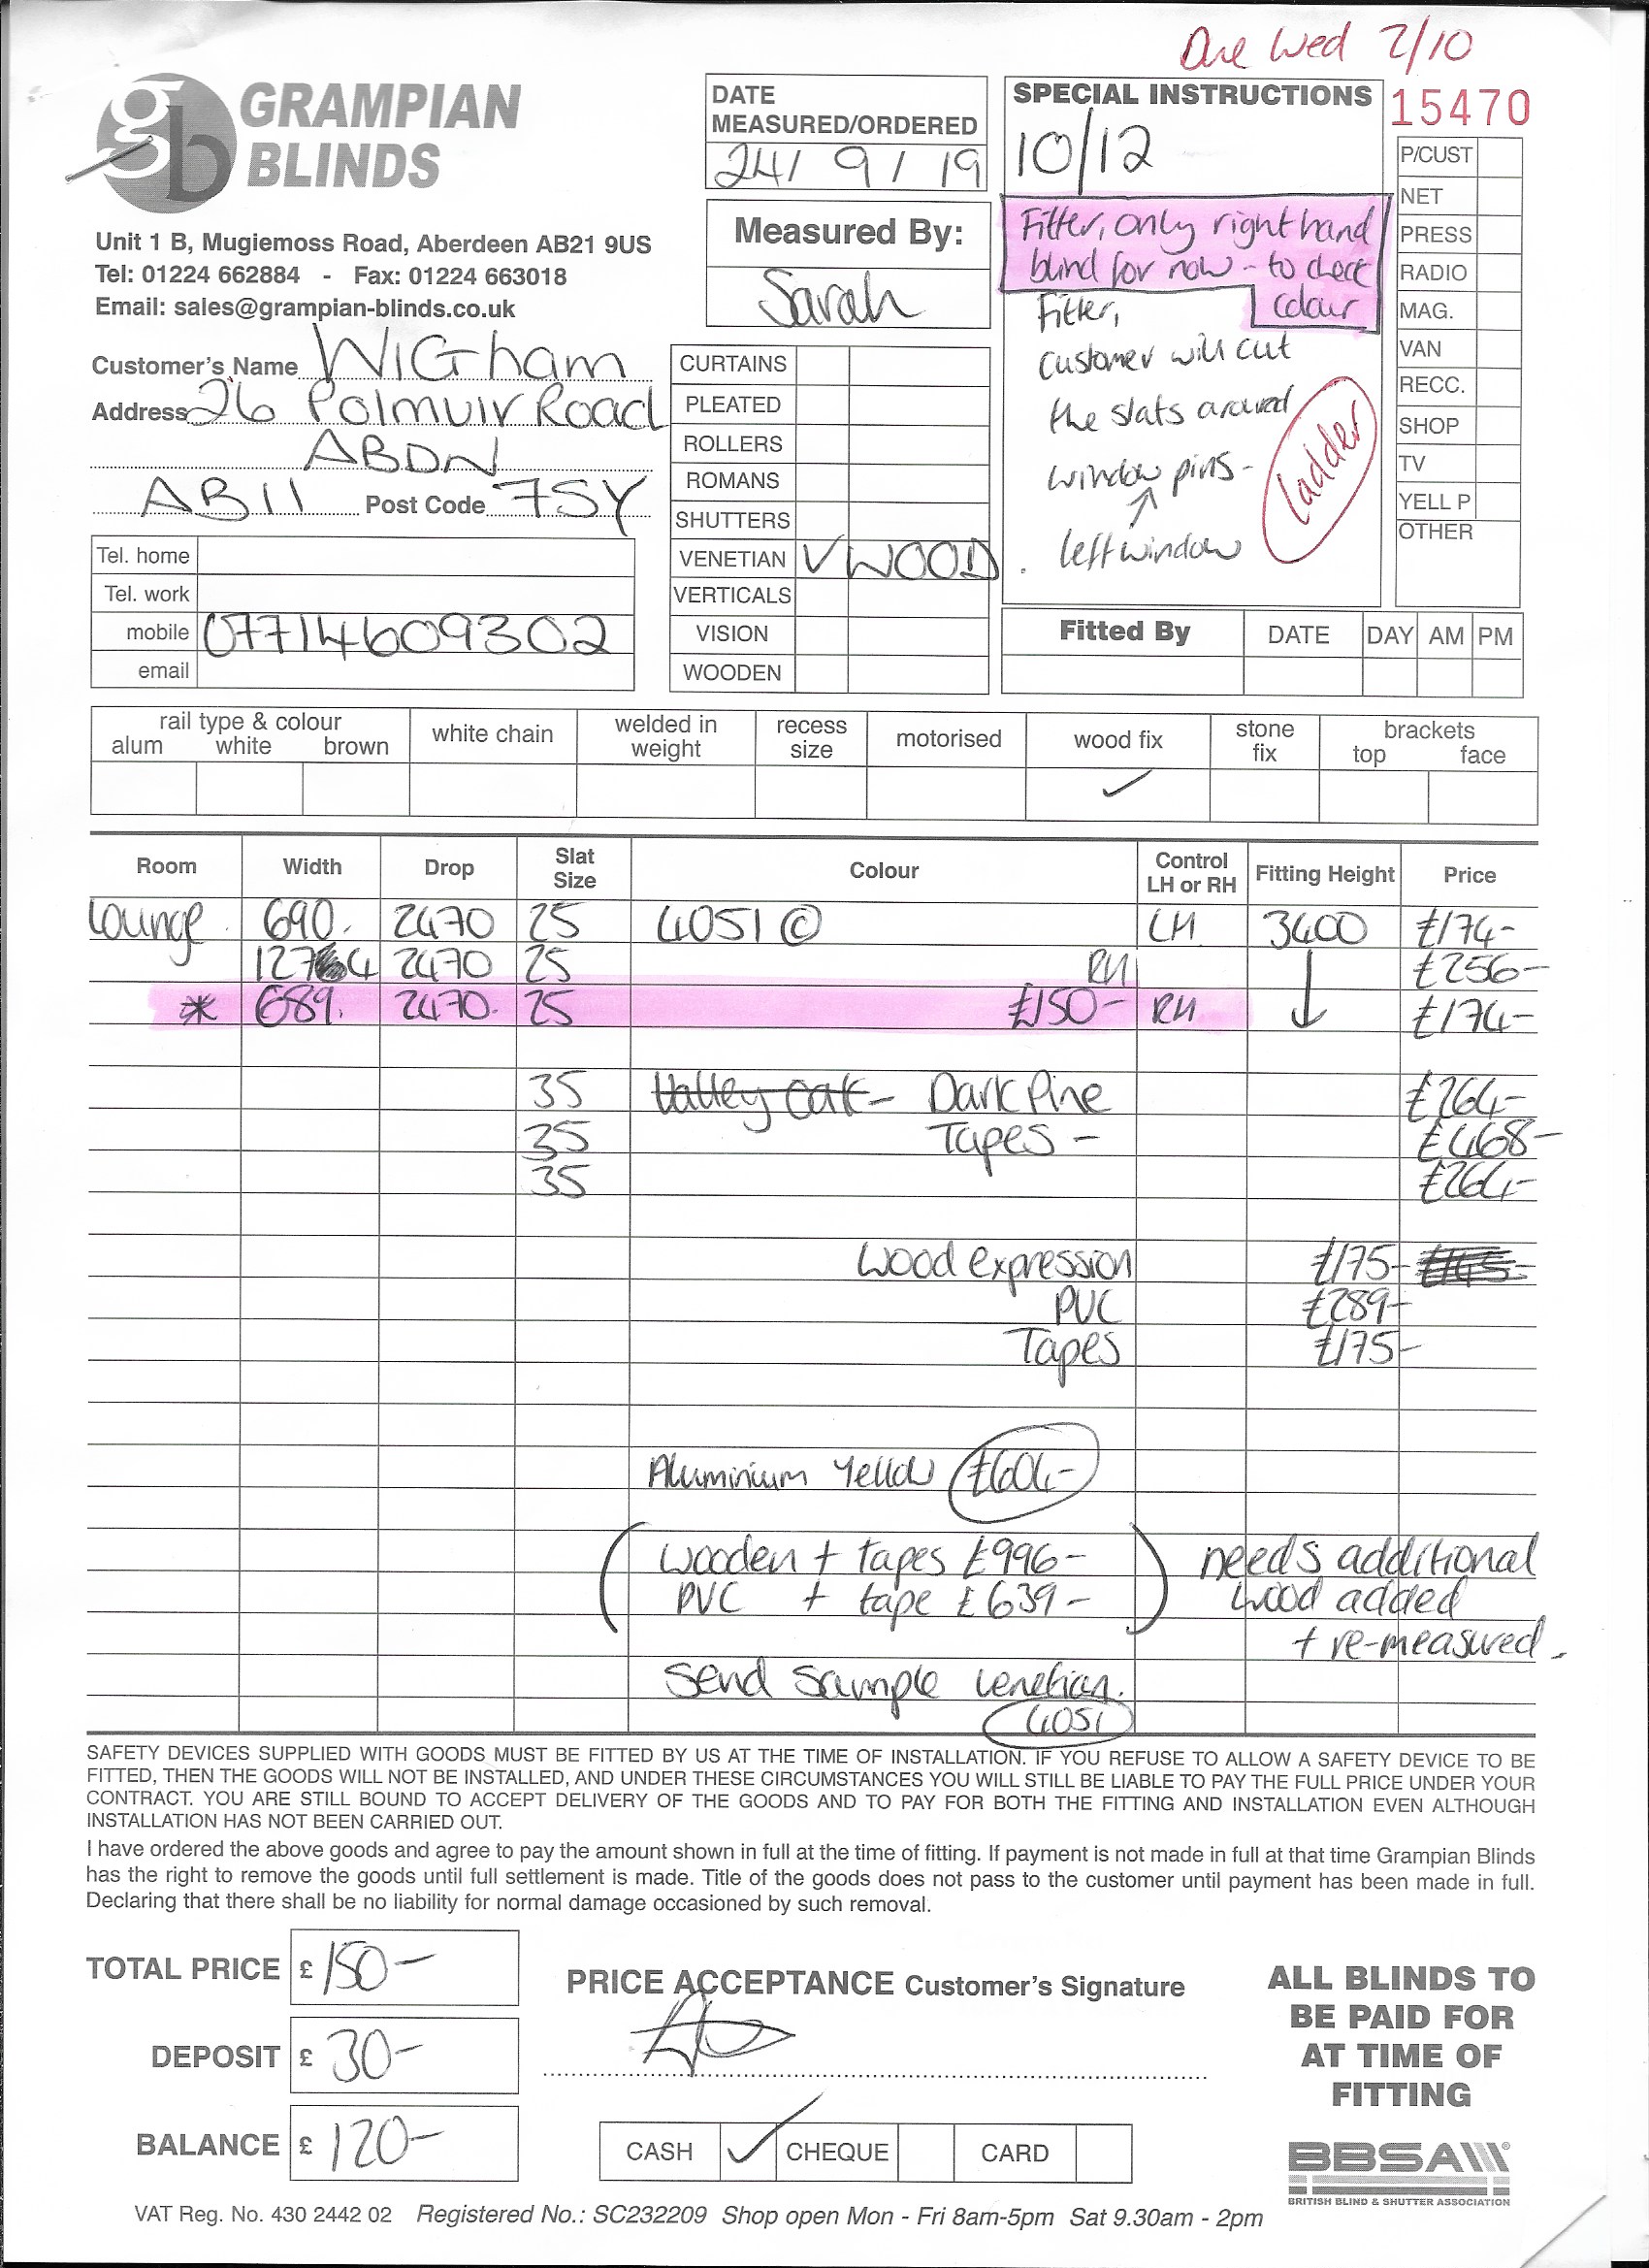 Due Wed 2/10
GRAMPIAN
BLINDS
Unit 1 B, Mugiemoss Road, Aberdeen AB21 9US
Tel: 01224 662884 - Fax: 01224 663018
Email: sales@grampian-blinds.co.uk
DATE
MEASURED/ORDERED
24/ 9 / 19
Measured By:
Sarah
SPECIAL INSTRUCTIONS
10/12
Fitter, only right hand
blind for now - to check
colour
Fitter,
customer will cut
the slats around
window pins -
left window
Ladder
15470
P/CUST
NET
PRESS
RADIO
MAG.
VAN
RECC.
SHOP
TV
YELL P
OTHER
Customer's Name WIGham
Address 26 Polmuir Road
ABDN
AB11 Post Code 7SY
Tel. home
Tel. work
mobile 07714609302
email
CURTAINS
PLEATED
ROLLERS
ROMANS
SHUTTERS
VENETIAN ✓ WOOD
VERTICALS
VISION
WOODEN
Fitted By DATE DAY AM PM
rail type & colour
alum white brown
white chain
welded in
weight
recess
size
motorised
wood fix
✓
stone
fix
brackets
top face
Room Width Drop Slat Size Colour Control LH or RH Fitting Height Price
Lounge 690. 2470 25 4051 © LH 3400 £174-
1274 2470 25 RH £256-
* 689. 2470. 25 £150- RH £174-
35 Valley Oak - Dark Pine £264-
35 Tapes - £468-
35 £264-
Wood expression £175- £145-
PVC £289-
Tapes £175-
Aluminium Yellow £604-
(wooden + tapes £996-
PVC + tape £639-)
needs additional
wood added
+ re-measured.
Send sample venetian.
4051
SAFETY DEVICES SUPPLIED WITH GOODS MUST BE FITTED BY US AT THE TIME OF INSTALLATION. IF YOU REFUSE TO ALLOW A SAFETY DEVICE TO BE
FITTED, THEN THE GOODS WILL NOT BE INSTALLED, AND UNDER THESE CIRCUMSTANCES YOU WILL STILL BE LIABLE TO PAY THE FULL PRICE UNDER YOUR
CONTRACT. YOU ARE STILL BOUND TO ACCEPT DELIVERY OF THE GOODS AND TO PAY FOR BOTH THE FITTING AND INSTALLATION EVEN ALTHOUGH
INSTALLATION HAS NOT BEEN CARRIED OUT.
I have ordered the above goods and agree to pay the amount shown in full at the time of fitting. If payment is not made in full at that time Grampian Blinds
has the right to remove the goods until full settlement is made. Title of the goods does not pass to the customer until payment has been made in full.
Declaring that there shall be no liability for normal damage occasioned by such removal.
TOTAL PRICE £ 150-
DEPOSIT £ 30-
BALANCE £ 120-
PRICE ACCEPTANCE Customer's Signature
CASH ✓ CHEQUE CARD
ALL BLINDS TO
BE PAID FOR
AT TIME OF
FITTING
BBSA
BRITISH BLIND & SHUTTER ASSOCIATION
VAT Reg. No. 430 2442 02 Registered No.: SC232209 Shop open Mon - Fri 8am-5pm Sat 9.30am - 2pm